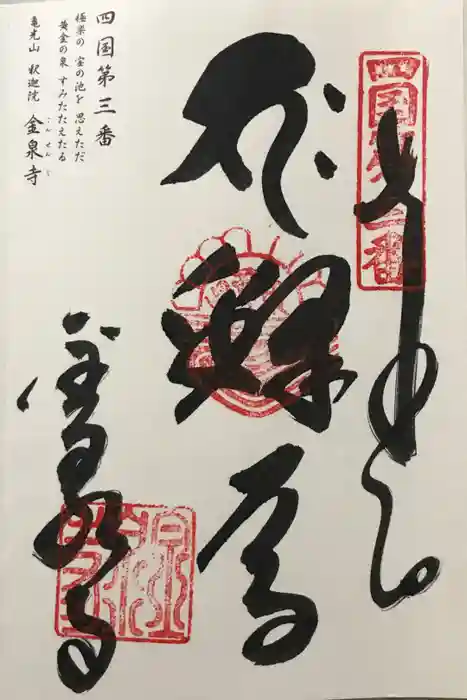 四国第三番
奉納
金泉寺
四国第三番
極楽の 宝の池を 思えただ
黄金の泉 すみたたえたる
亀光山 釈迦院 金泉寺
こんせんじ